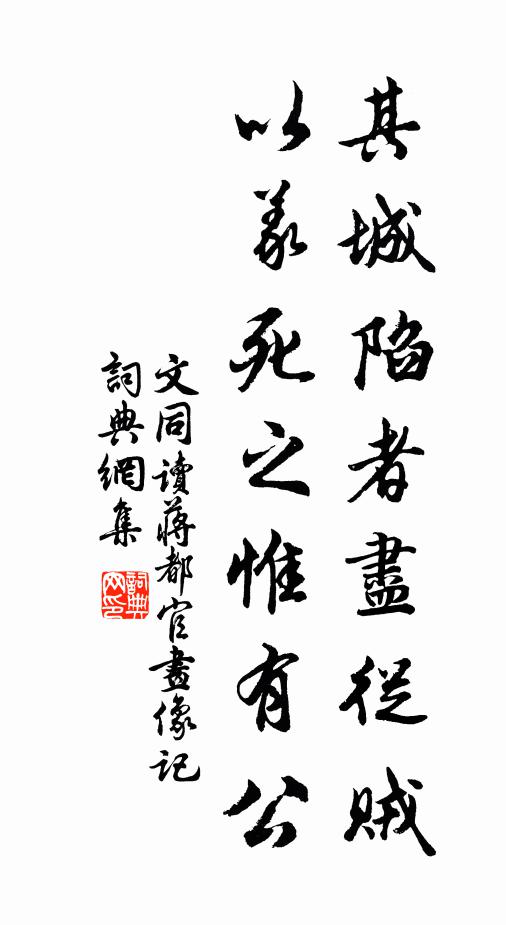 其城陷者盡從賊
以義死之惟有公
文同讀蔣都官畫像記
詞典網集
詞典
网印